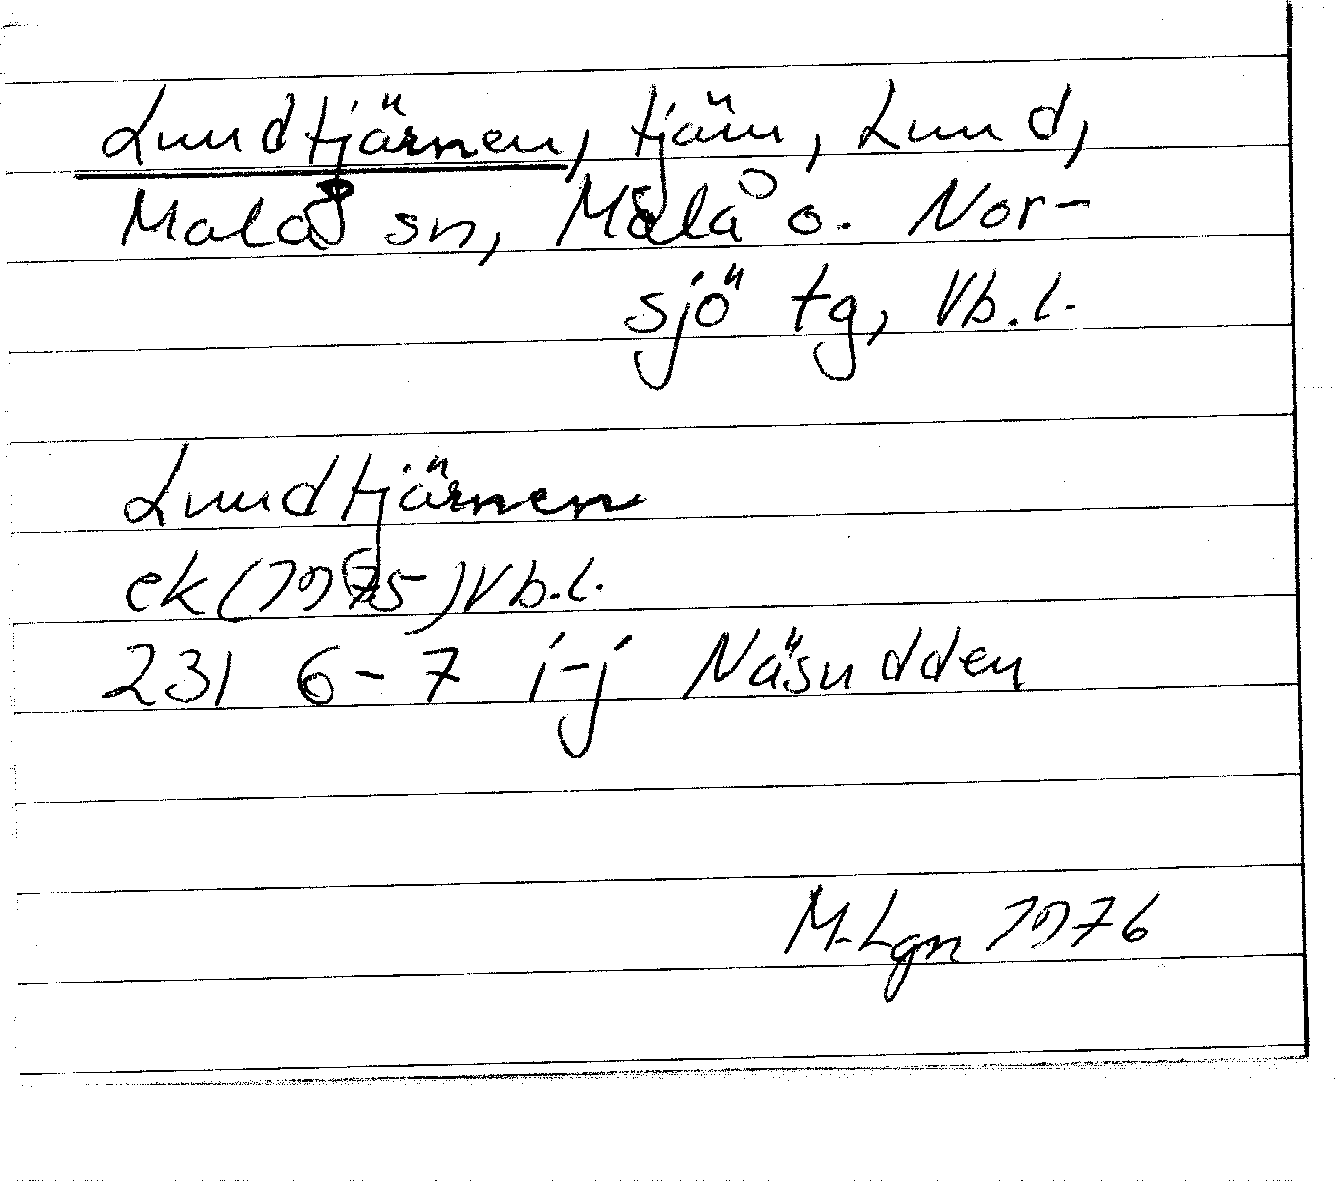 Lundtjärnen, tjärn, Lund,
Malå sn, Malå o. Nor-
sjö tg, Vb.l.
Lundtjärnen
ek (1975) Vb.l.
231 6-7 i-j Näsudden
M-Lgn 1976